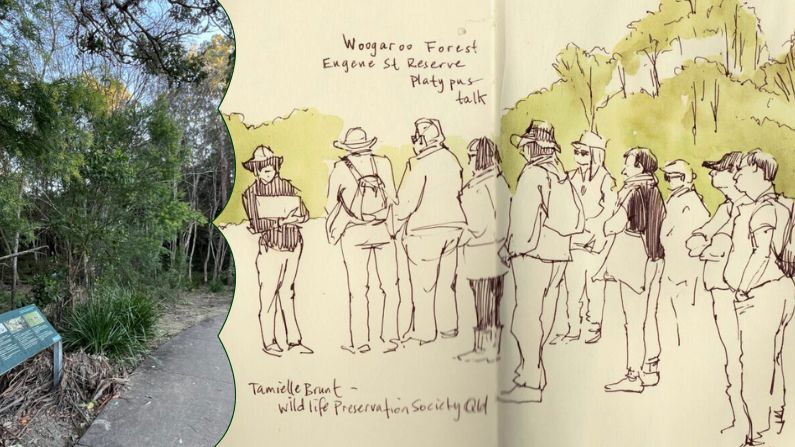 Woogaroo Forest
Eugene St Reserve
Platypus
talk
Tamielle Brunt -
Wildlife Preservation Society Qld